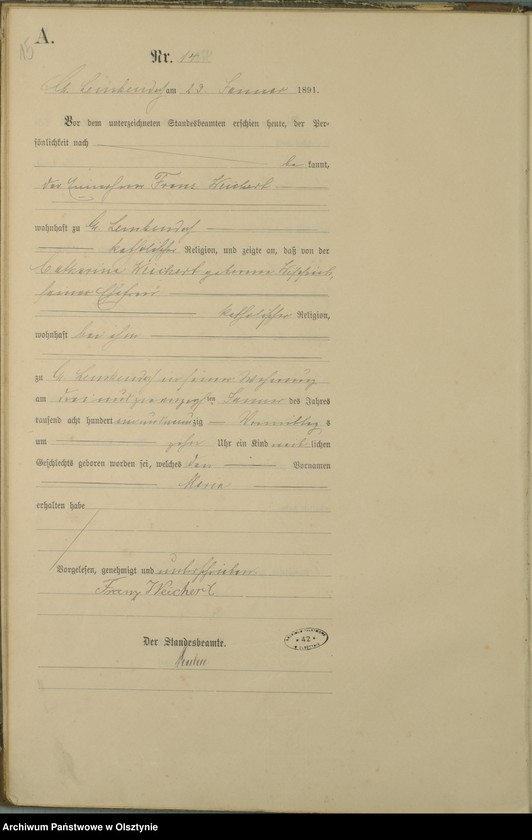 A.
15
Nr.
am 23 Januar 1891.
Vor dem unterzeichneten Standesbeamten erschien heute, der Per-
sönlichkeit nach
be kannt,
der Franz Weichert
wohnhaft zu Gr. Lemkendorf
katholischer Religion, und zeigte an, daß von der
Catharina Weichert geborenen
seiner Ehefrau
katholischer Religion,
wohnhaft bei ihm
zu Gr. Lemkendorf in seiner Wohnung
am drei und zwanzigsten Januar des Jahres
tausend acht hundert ein und neunzig Vormittag s
um zehn Uhr ein Kind weiblichen
Geschlechts geboren worden sei, welches den Vornamen
erhalten habe
Vorgelesen, genehmigt und unterschrieben
Franz Weichert
Der Standesbeamte.
42
Archiwum Państwowe w Olsztynie